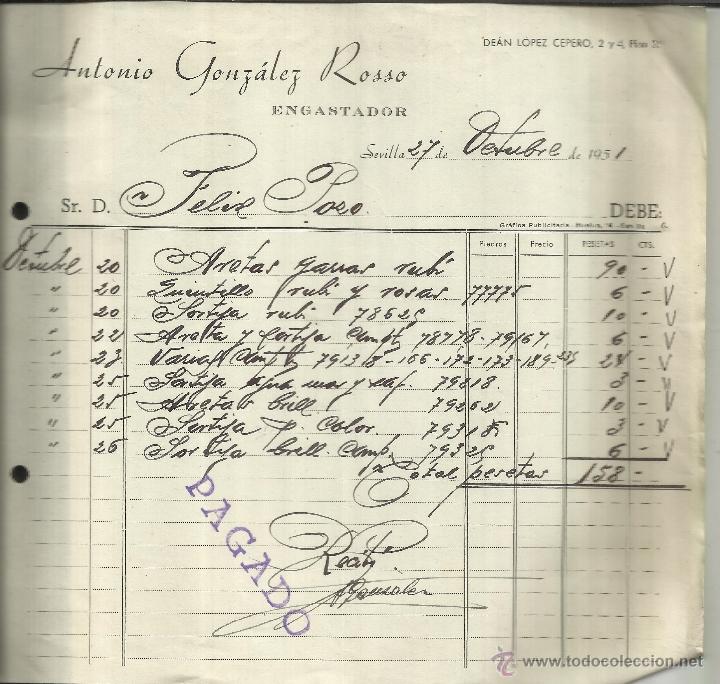 DEÁN LÓPEZ CEPERO, 2 y 4, Piso
Antonio González Rosso
ENGASTADOR
Sevilla 27 de Octubre de 1951
Sr. D. Felix Pozo. DEBE:
Gráfica Publicitaria
Piedras Precio PESETAS CTS.
Octubre 20 Aretas garras rubí 90 -
" 20 rubí y rosas 77775 6 -
" 20 Sortija rubí 78625 10 -
" 22 Areta y Sortija Compt 78778-79167 6 -
" 23 Varias Compt 79138-166-172-173-189 24 -
" 25 Sortija y zaf. 79218 3 -
" 25 Aretas brill 79262 10 -
" 25 Sortija p. Color 79318 3 -
" 26 Sortija brill. Comp. 79325 6 -
Total pesetas 158 -
PAGADO
Recibí
AGonzalez
www.todocoleccion.net